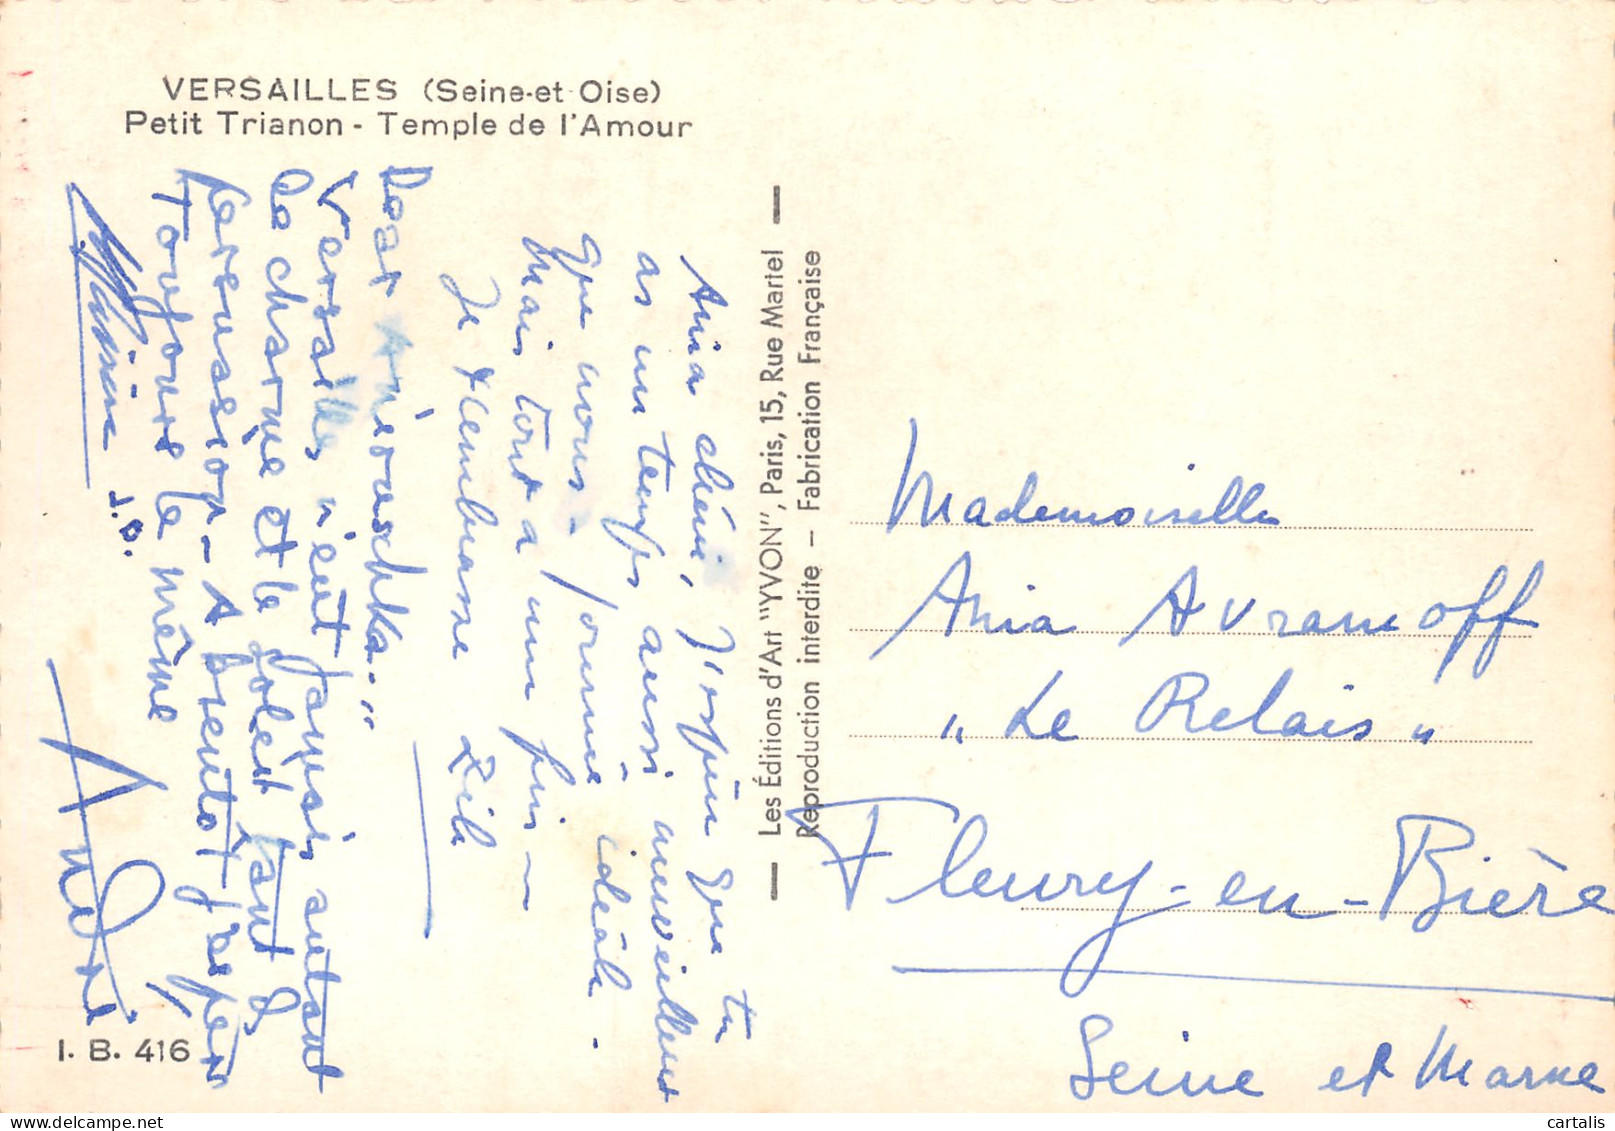 VERSAILLES (Seine-et-Oise)
Petit Trianon - Temple de l'Amour
Ania chérie, J'espère que tu
as un temps aussi merveilleux
que nous. Journée idéale.
Mais tout a une fin -
Je t'embrasse Lili
Dear
Versailles n'eut jamais autant
de charme et le soleil tant d
répercussion - A bientot j'espère
Toujours la même
André
I. B. 416
Les Éditions d'Art "YVON", Paris, 15, Rue Martel
Reproduction interdite - Fabrication Française
Mademoiselle
Ania Avramoff
"Le Relais"
Fleury-en-Bière
Seine et Marne
cartalis